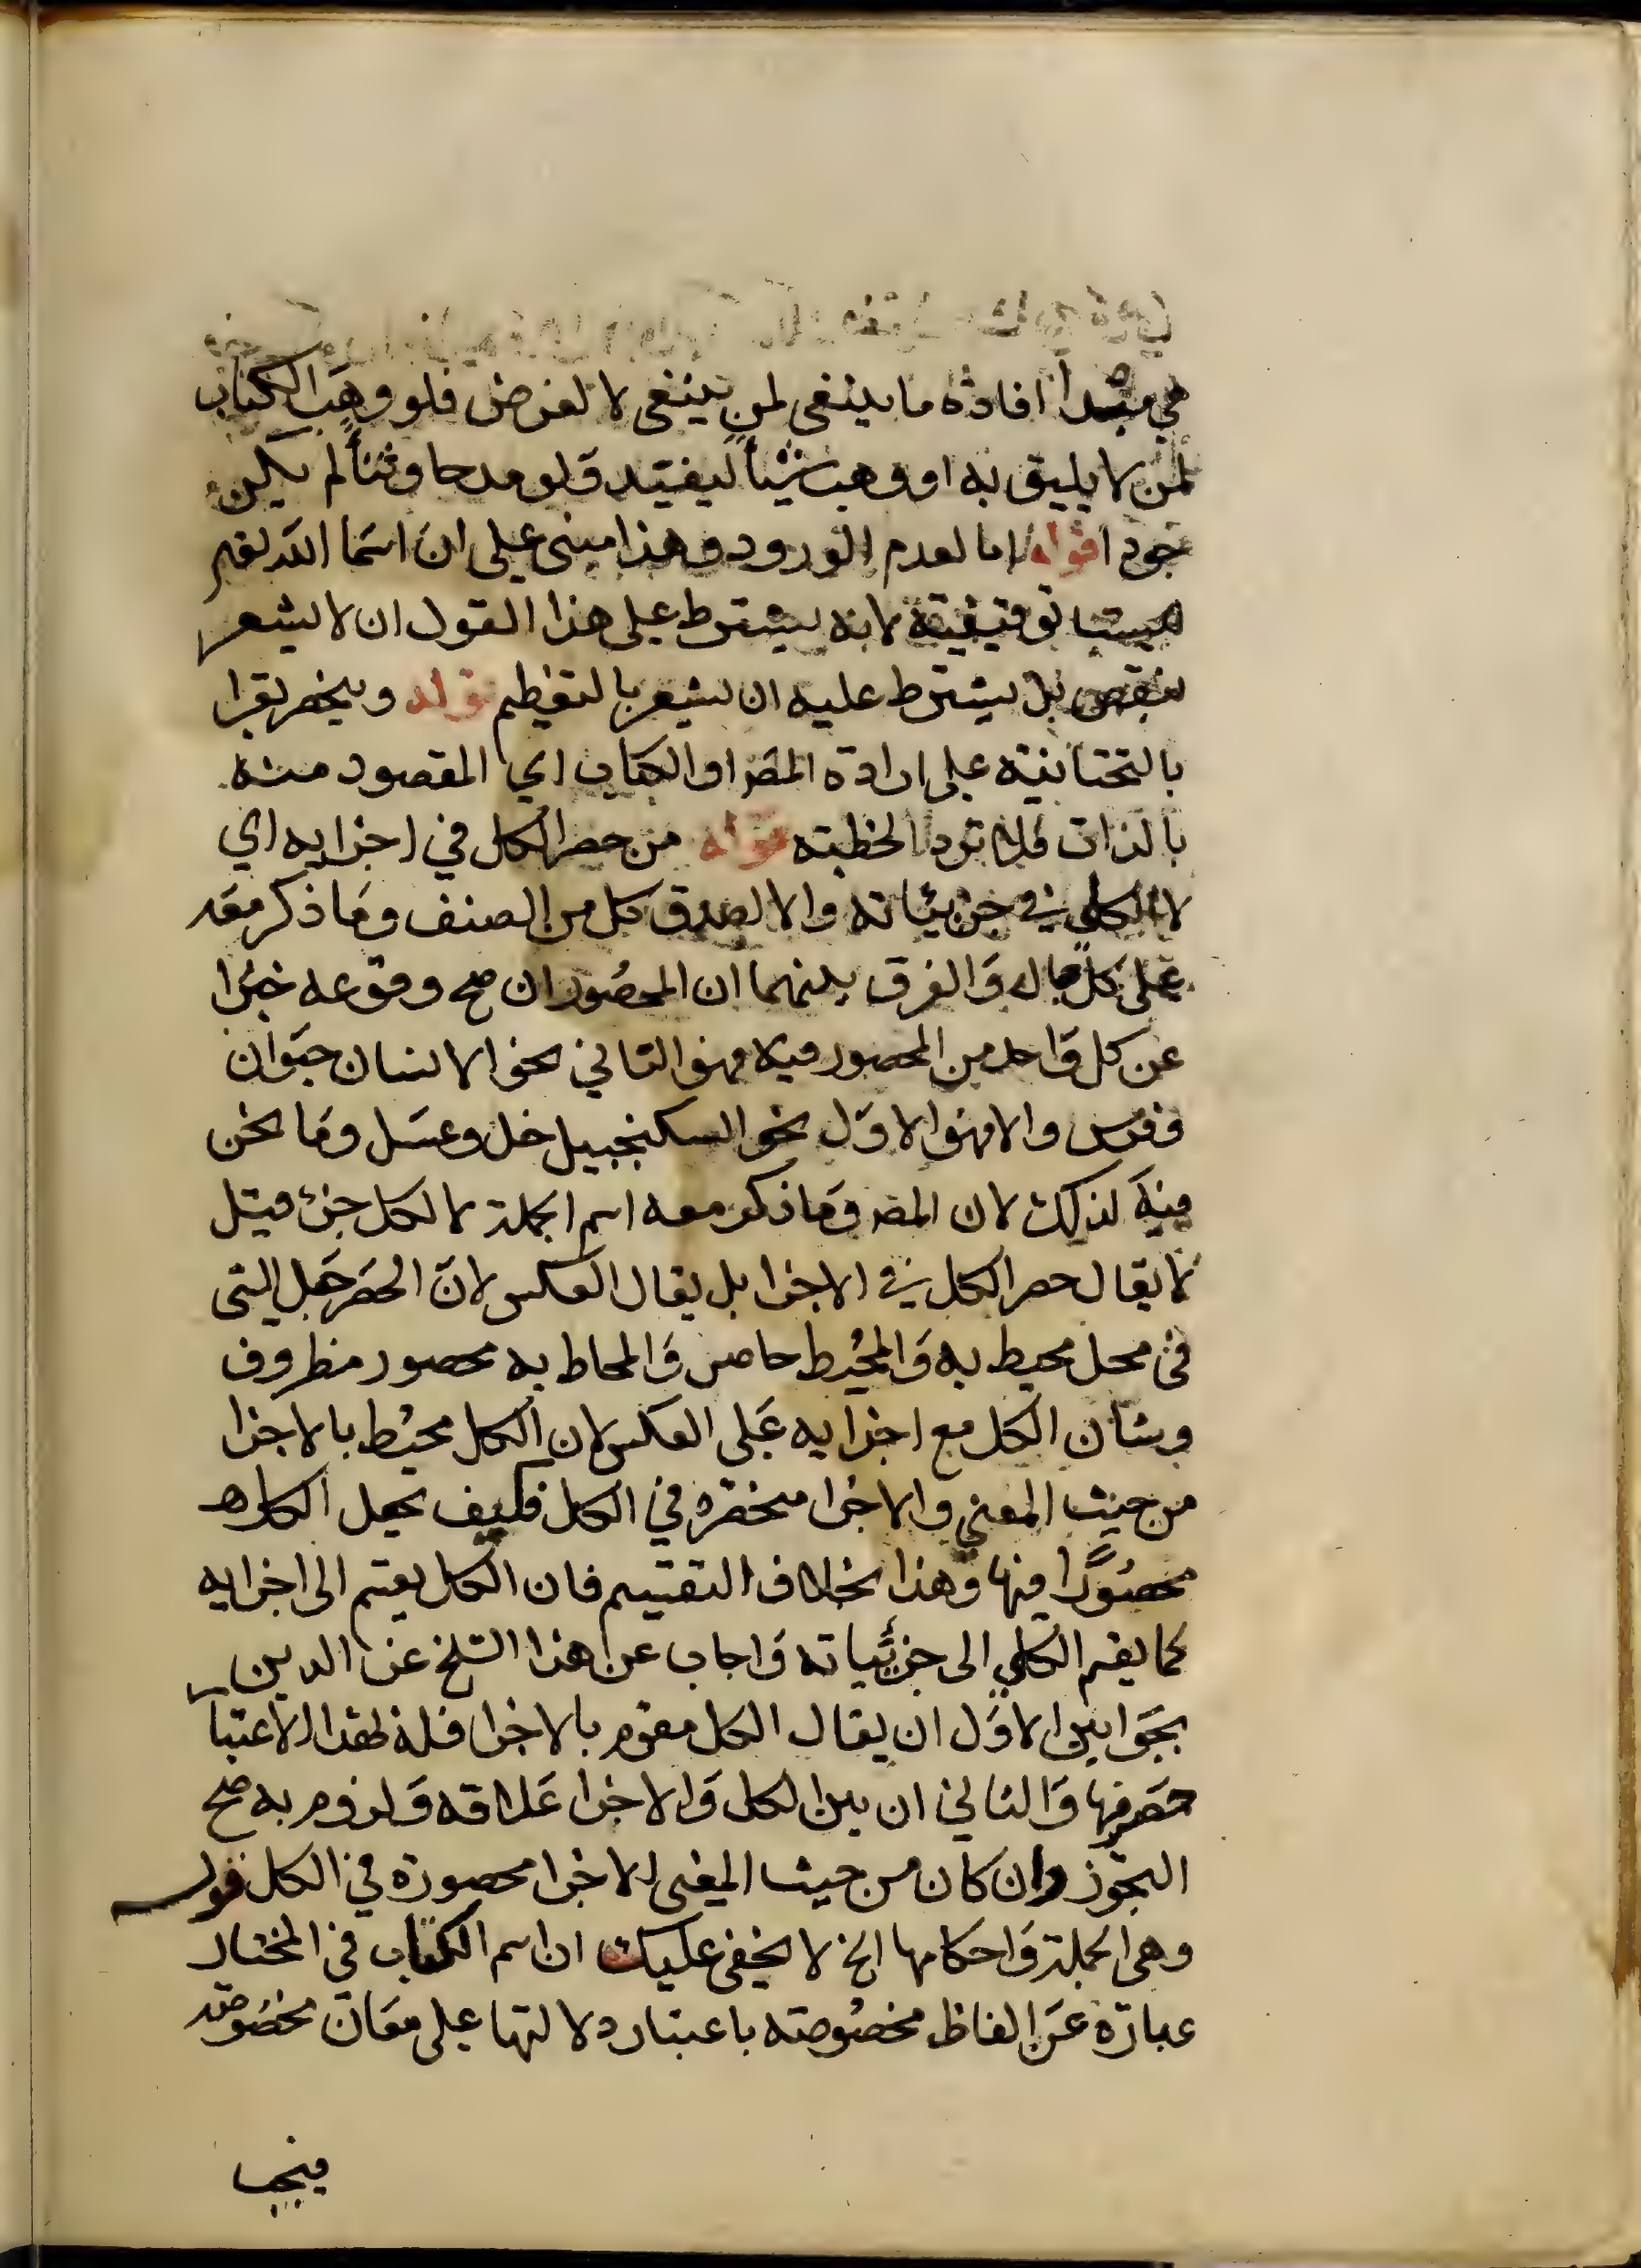 هي مبدأ افادة ما ينبغي لمن ينبغي لا لغرض فلو وهب الكتاب
لمن لا يليق به او وهب شيأ ليفيد قلو مدحا وثنأ لم يكن
جودا قوله اما لعدم الورود وهذا مبنى على ان اسما الله تعم
ليست توقيفية لانه يشترط على هذا القول ان لا يشعر
بنقص بل يشترط عليه ان يشعر بالتعظيم قوله وينحصر يقرا
بالتحتانية على ارادة المص او الكتاب اي المقصود منه
بالذات فلا ترد الخطبته قوله من حصر الكل في اجزايه اي
لا الكلى في جزيئاته والا لصدق كل من الصنف وما ذكر معه
على كل حال والفرق بينهما ان المحصور ان صح وقوعه خبرا
عن كل واحد من المحصور فيه فهو الثاني نحو الانسان حيوان
وفرس والا فهو الاول نحو السكنجبيل خل وعسل وما نحن
فيه لذلك لان المص وما ذكر معه اسم الجملة لا لكل جزء قيل
لا يقال حصر الكل في الاجزا بل يقال العكس لان الحصر جعل الشى
فى محل محيط به والمحيط حاصر والمحاط به محصور مظروف
وشان الكل مع اجزايه على العكس لان الكل محيط بالاجزا
من حيث المعني والاجزا منحصره في الكل فكيف يجعل الكل
محصورا فيها وهذا بخلاف التقسيم فان الكل يقسم الى اجزايه
كما يقسم الكلي الى جزئياته واجاب عن هذا الشخ عز الدين
بجوابين الاول ان يقال الكل مقوم بالاجزا فله بهذا الاعتبا
حصر فيها والثاني ان بين الكل والاجزا علاقه ولزوم به صح
التجوز وان كان من حيث المعنى الاجزا محصورة في الكل قوله
وهى الجملة واحكامها الخ لا يخفى عليك ان اسم الكتاب في المختار
عبارة عن الفاظ مخصوصة باعتبار دلالتها على معان مخصوصة
فيجب